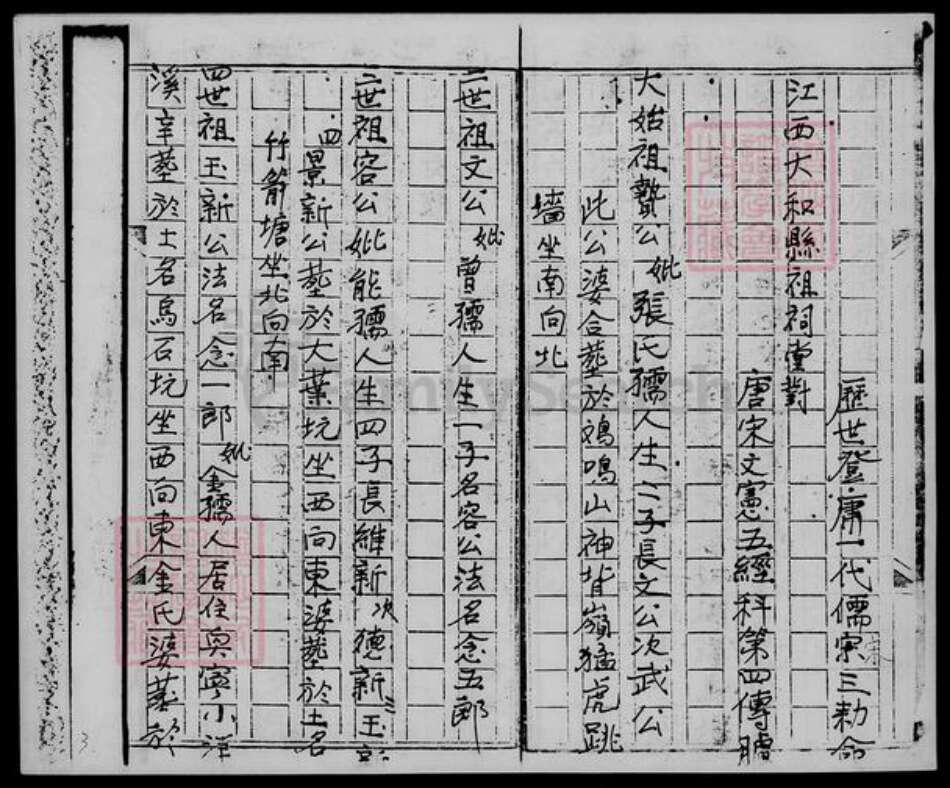 歷世登庸一代儒宗三勅命
江西大和縣祖祠堂對
唐宋文憲五經科第四傳臚
大始祖贄公妣張氏孺人生二子長文公次武公
此公婆合塟於鴉鳴山神背嶺猛虎跳
墻坐南向北
二世祖文公妣曾孺人生一子名容公法名念五郎
三世祖容公妣能孺人生四子長維新次德新三玉新
四景新公塟於大葉坑坐西向東婆塟於土名
竹箭塘坐北向南
四世祖玉新公法名念一郎妣金孺人居住興寧小洋
溪辛塟於土名烏石坑坐西向東金氏婆塟於
3
FamilySearch